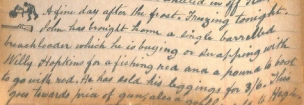 A fine day after the frost. Freezing tonight.
John has brought home a single barrelled
breachloader which he is buying or swapping with
Willy Hopkins for a fishing rod and a pound to boot
to go with rod. He has sold his leggings for 3/6. This
goes towards price of gun, also a